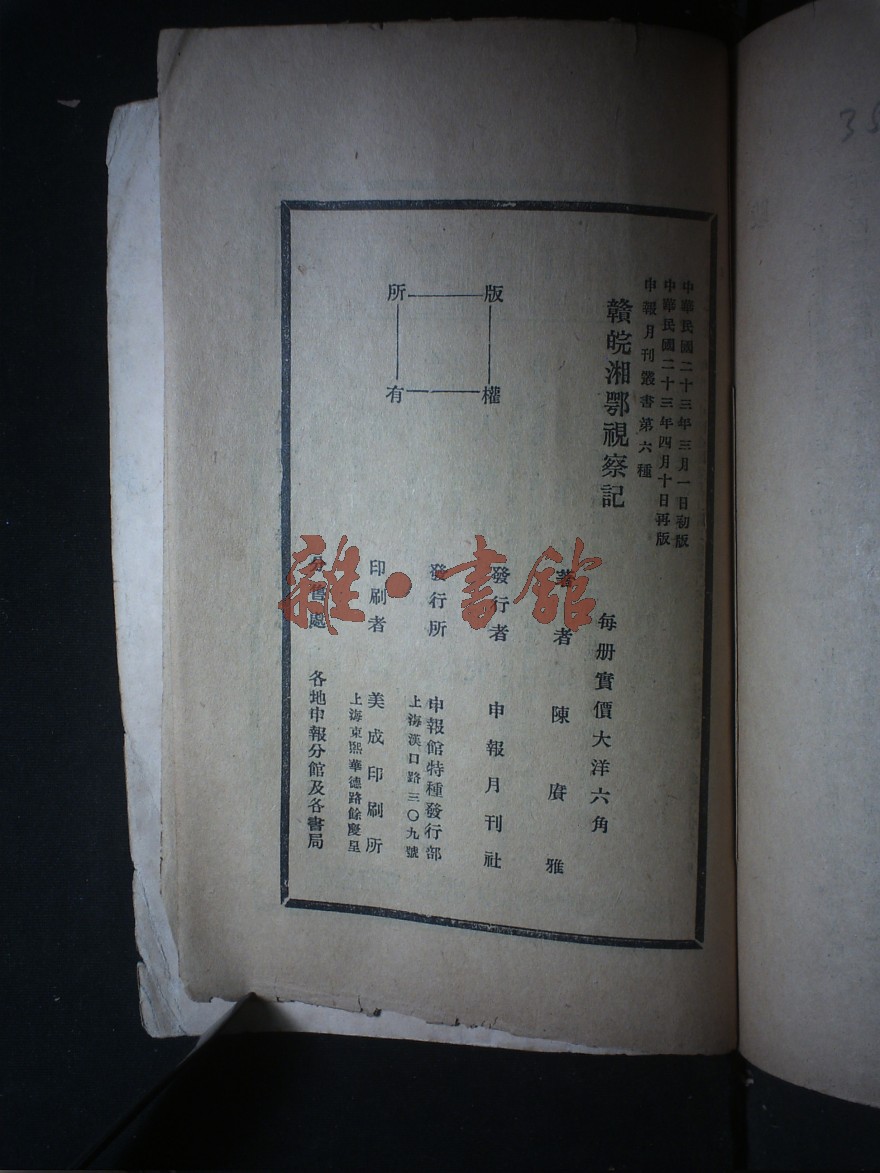 中華民國二十三年三月一日初版
中華民國二十三年四月十日再版
申報月刊叢書第六種
贛皖湘鄂視察記
每册實價大洋六角
著者 陳賡雅
發行者 申報月刊社
發行所 申報館特種發行部
上海漢口路三〇九號
印刷者 美成印刷所
上海東熙華德路餘慶里
分售處 各地申報分館及各書局
版權所有
雜·書館
35